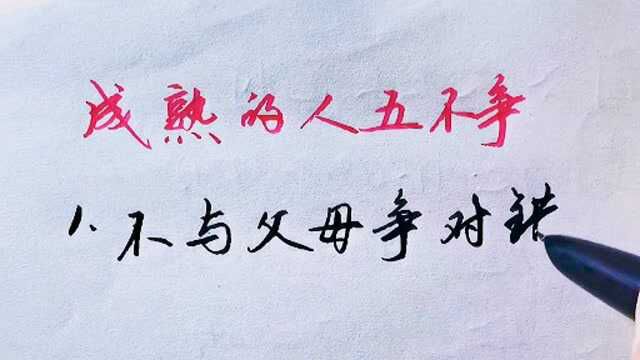 成熟的人五不争
1.不与父母争对错